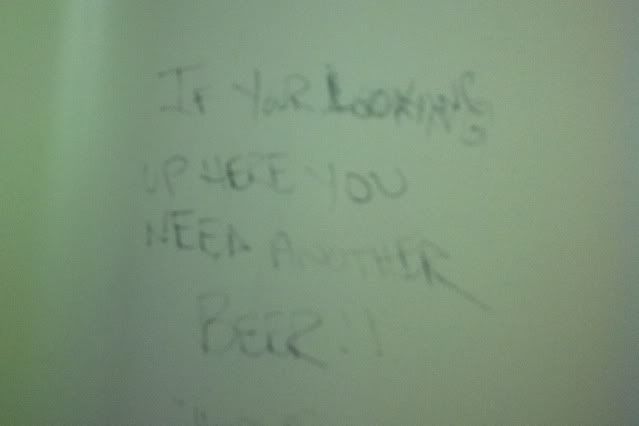 IF YOUR LOOKING
UP HERE YOU
NEED ANOTHER
BEER!!